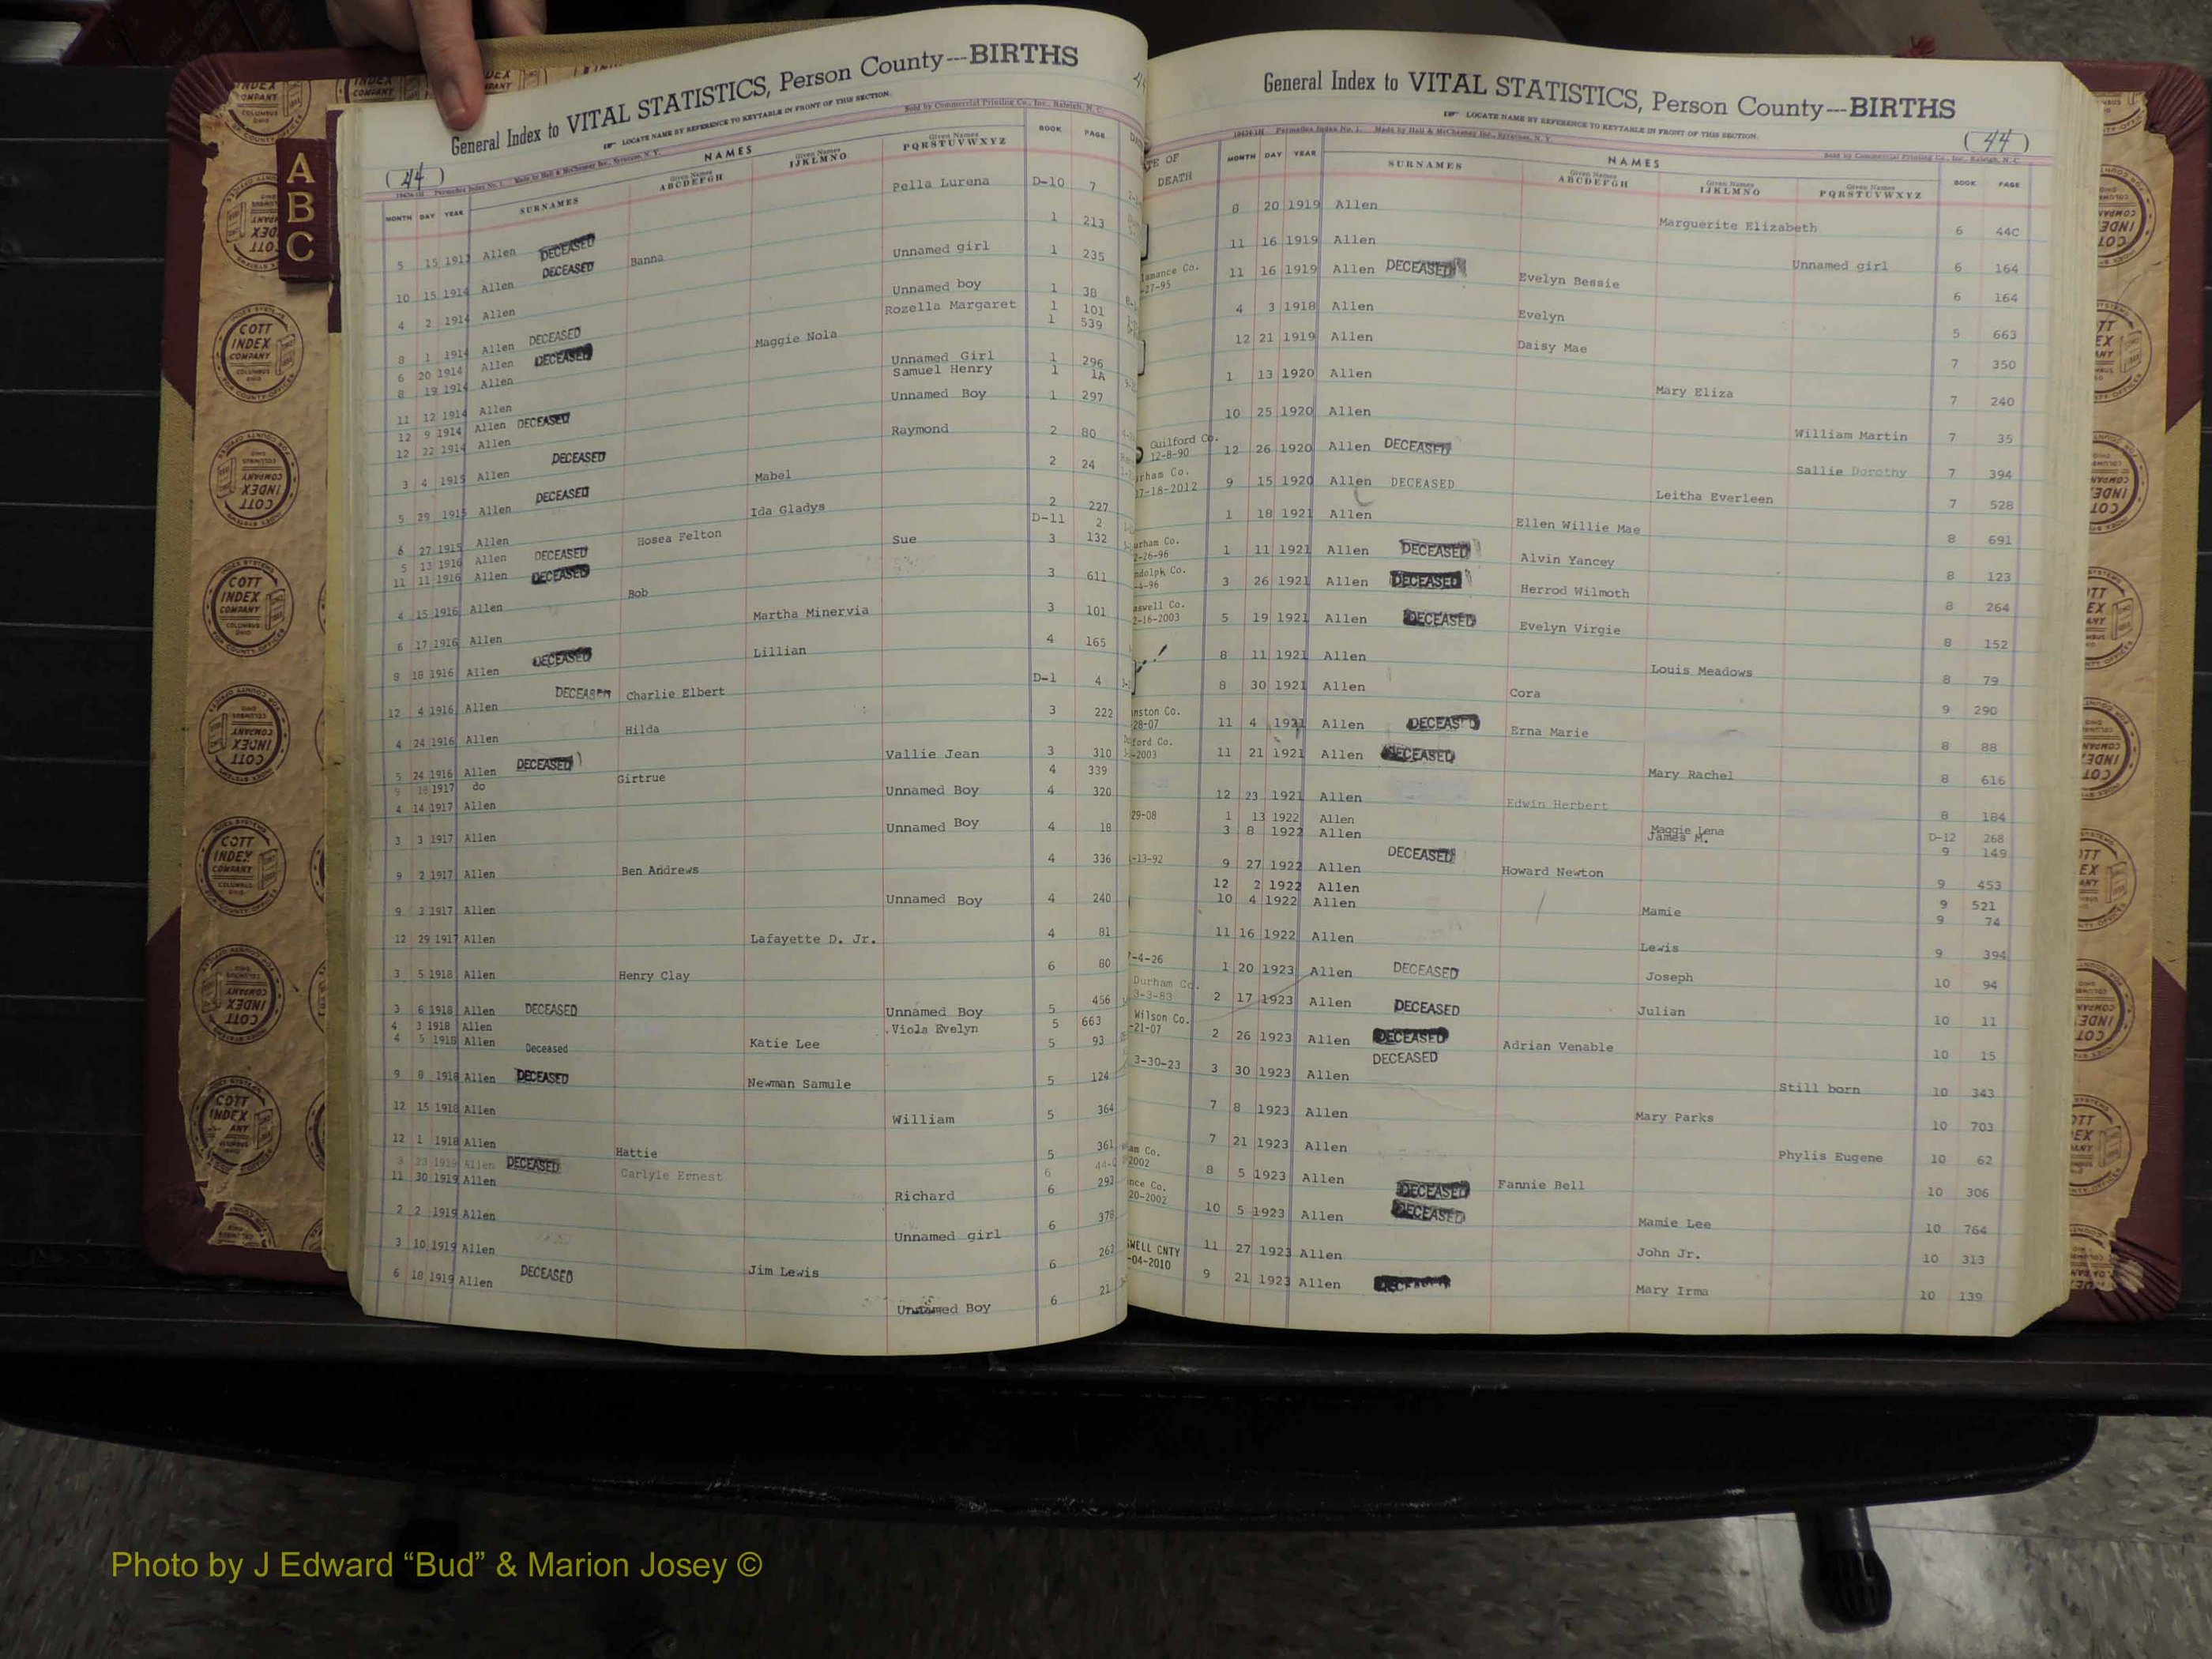 General Index to VITAL STATISTICS, Person County---BIRTHS
LOCATE NAME BY REFERENCE TO KEYTABLE IN FRONT OF THIS SECTION.
(44) Made by Hall & McChesney Inc., Syracuse, N. Y. Sold by Commercial Printing Co., Inc., Raleigh, N. C.
MONTH DAY YEAR SURNAMES NAMES Given Names ABCDEFGH Given Names IJKLMNO Given Names PQRSTUVWXYZ BOOK PAGE
A
B
C
5 15 1913 Allen DECEASED Pella Lurena D-10 7
10 15 1914 Allen DECEASED Banna 1 213
4 2 1914 Allen Unnamed girl 1 235
8 1 1914 Allen DECEASED Unnamed boy 1 38
6 20 1914 Allen DECEASED Rozella Margaret 1 101
8 19 1914 Allen Maggie Nola 1 539
11 12 1914 Allen Unnamed Girl 1 296
12 9 1914 Allen DECEASED Samuel Henry 1 1A
12 22 1914 Allen Unnamed Boy 1 297
3 4 1915 Allen DECEASED Raymond 2 80
5 29 1915 Allen DECEASED Mabel 2 24
6 27 1915 Allen Ida Gladys 2 227
5 13 1916 Allen DECEASED Hosea Felton D-11 2
11 11 1916 Allen DECEASED Sue 3 132
4 15 1916 Allen Bob 3 611
6 17 1916 Allen Martha Minervia 3 101
8 18 1916 Allen DECEASED Lillian 4 165
12 4 1916 Allen DECEASED Charlie Elbert D-1 4
4 24 1916 Allen Hilda 3 222
5 24 1916 Allen DECEASED Vallie Jean 3 310
9 18 1917 do Girtrue 4 339
4 14 1917 Allen Unnamed Boy 4 320
3 3 1917 Allen Unnamed Boy 4 18
9 2 1917 Allen Ben Andrews 4 336
9 3 1917 Allen Unnamed Boy 4 240
12 29 1917 Allen Lafayette D. Jr. 4 81
3 5 1918 Allen Henry Clay 6 80
3 6 1918 Allen DECEASED Unnamed Boy 5 456
4 3 1918 Allen Viola Evelyn 5 663
4 5 1918 Allen Deceased Katie Lee 5 93
9 8 1918 Allen DECEASED Newman Samule 5 124
12 15 1918 Allen William 5 364
12 1 1918 Allen Hattie 5 361
23 1919 Allen DECEASED Carlyle Ernest 6
11 30 1919 Allen Richard 6 293
2 2 1919 Allen Unnamed girl 6 378
3 10 1919 Allen Jim Lewis 6 262
6 18 1919 Allen DECEASED Unnamed Boy 6 21
General Index to VITAL STATISTICS, Person County---BIRTHS
LOCATE NAME BY REFERENCE TO KEYTABLE IN FRONT OF THIS SECTION.
Made by Hall & McChesney Inc., Syracuse, N. Y. Sold by Commercial Printing Co., Inc., Raleigh, N. C. (44)
TE OF DEATH MONTH DAY YEAR SURNAMES NAMES Given Names ABCDEFGH Given Names IJKLMNO Given Names PQRSTUVWXYZ BOOK PAGE
8 20 1919 Allen Marguerite Elizabeth 6 44C
11 16 1919 Allen Unnamed girl 6 164
lamance Co. 27-95 11 16 1919 Allen DECEASED Evelyn Bessie 6 164
4 3 1918 Allen Evelyn 5 663
12 21 1919 Allen Daisy Mae 7 350
1 13 1920 Allen Mary Eliza 7 240
10 25 1920 Allen William Martin 7 35
Guilford Co. 12-8-90 12 26 1920 Allen DECEASED Sallie Dorothy 7 394
urham Co. 07-18-2012 9 15 1920 Allen DECEASED Leitha Everleen 7 528
1 18 1921 Allen Ellen Willie Mae 8 691
urham Co. 2-26-96 1 11 1921 Allen DECEASED Alvin Yancey 8 123
ndolph Co. -4-96 3 26 1921 Allen DECEASED Herrod Wilmoth 8 264
aswell Co. 2-16-2003 5 19 1921 Allen DECEASED Evelyn Virgie 8 152
8 11 1921 Allen Louis Meadows 8 79
8 30 1921 Allen Cora 9 290
nston Co. 28-07 11 4 1921 Allen DECEASED Erna Marie 8 88
ford Co. -2003 11 21 1921 Allen DECEASED Mary Rachel 8 616
12 23 1921 Allen Edwin Herbert 8 184
29-08 1 13 1922 Allen Maggie Lena D-12 268
3 8 1922 Allen James M. 9 149
-13-92 9 27 1922 Allen DECEASED Howard Newton 9 453
12 2 1922 Allen 9 521
10 4 1922 Allen Mamie 9 74
11 16 1922 Allen Lewis 9 394
-4-26 1 20 1923 Allen DECEASED Joseph 10 94
Durham Co. 3-3-83 2 17 1923 Allen DECEASED Julian 10 11
Wilson Co. -21-07 2 26 1923 Allen DECEASED Adrian Venable 10 15
3-30-23 3 30 1923 Allen DECEASED Still born 10 343
7 8 1923 Allen Mary Parks 10 703
7 21 1923 Allen Phylis Eugene 10 62
am Co. 2002 8 5 1923 Allen DECEASED Fannie Bell 10 306
nce Co. 20-2002 10 5 1923 Allen DECEASED Mamie Lee 10 764
SWELL CNTY -04-2010 11 27 1923 Allen John Jr. 10 313
9 21 1923 Allen DECEASED Mary Irma 10 139
COTT INDEX COMPANY COLUMBUS OHIO
Photo by J Edward “Bud” & Marion Josey ©